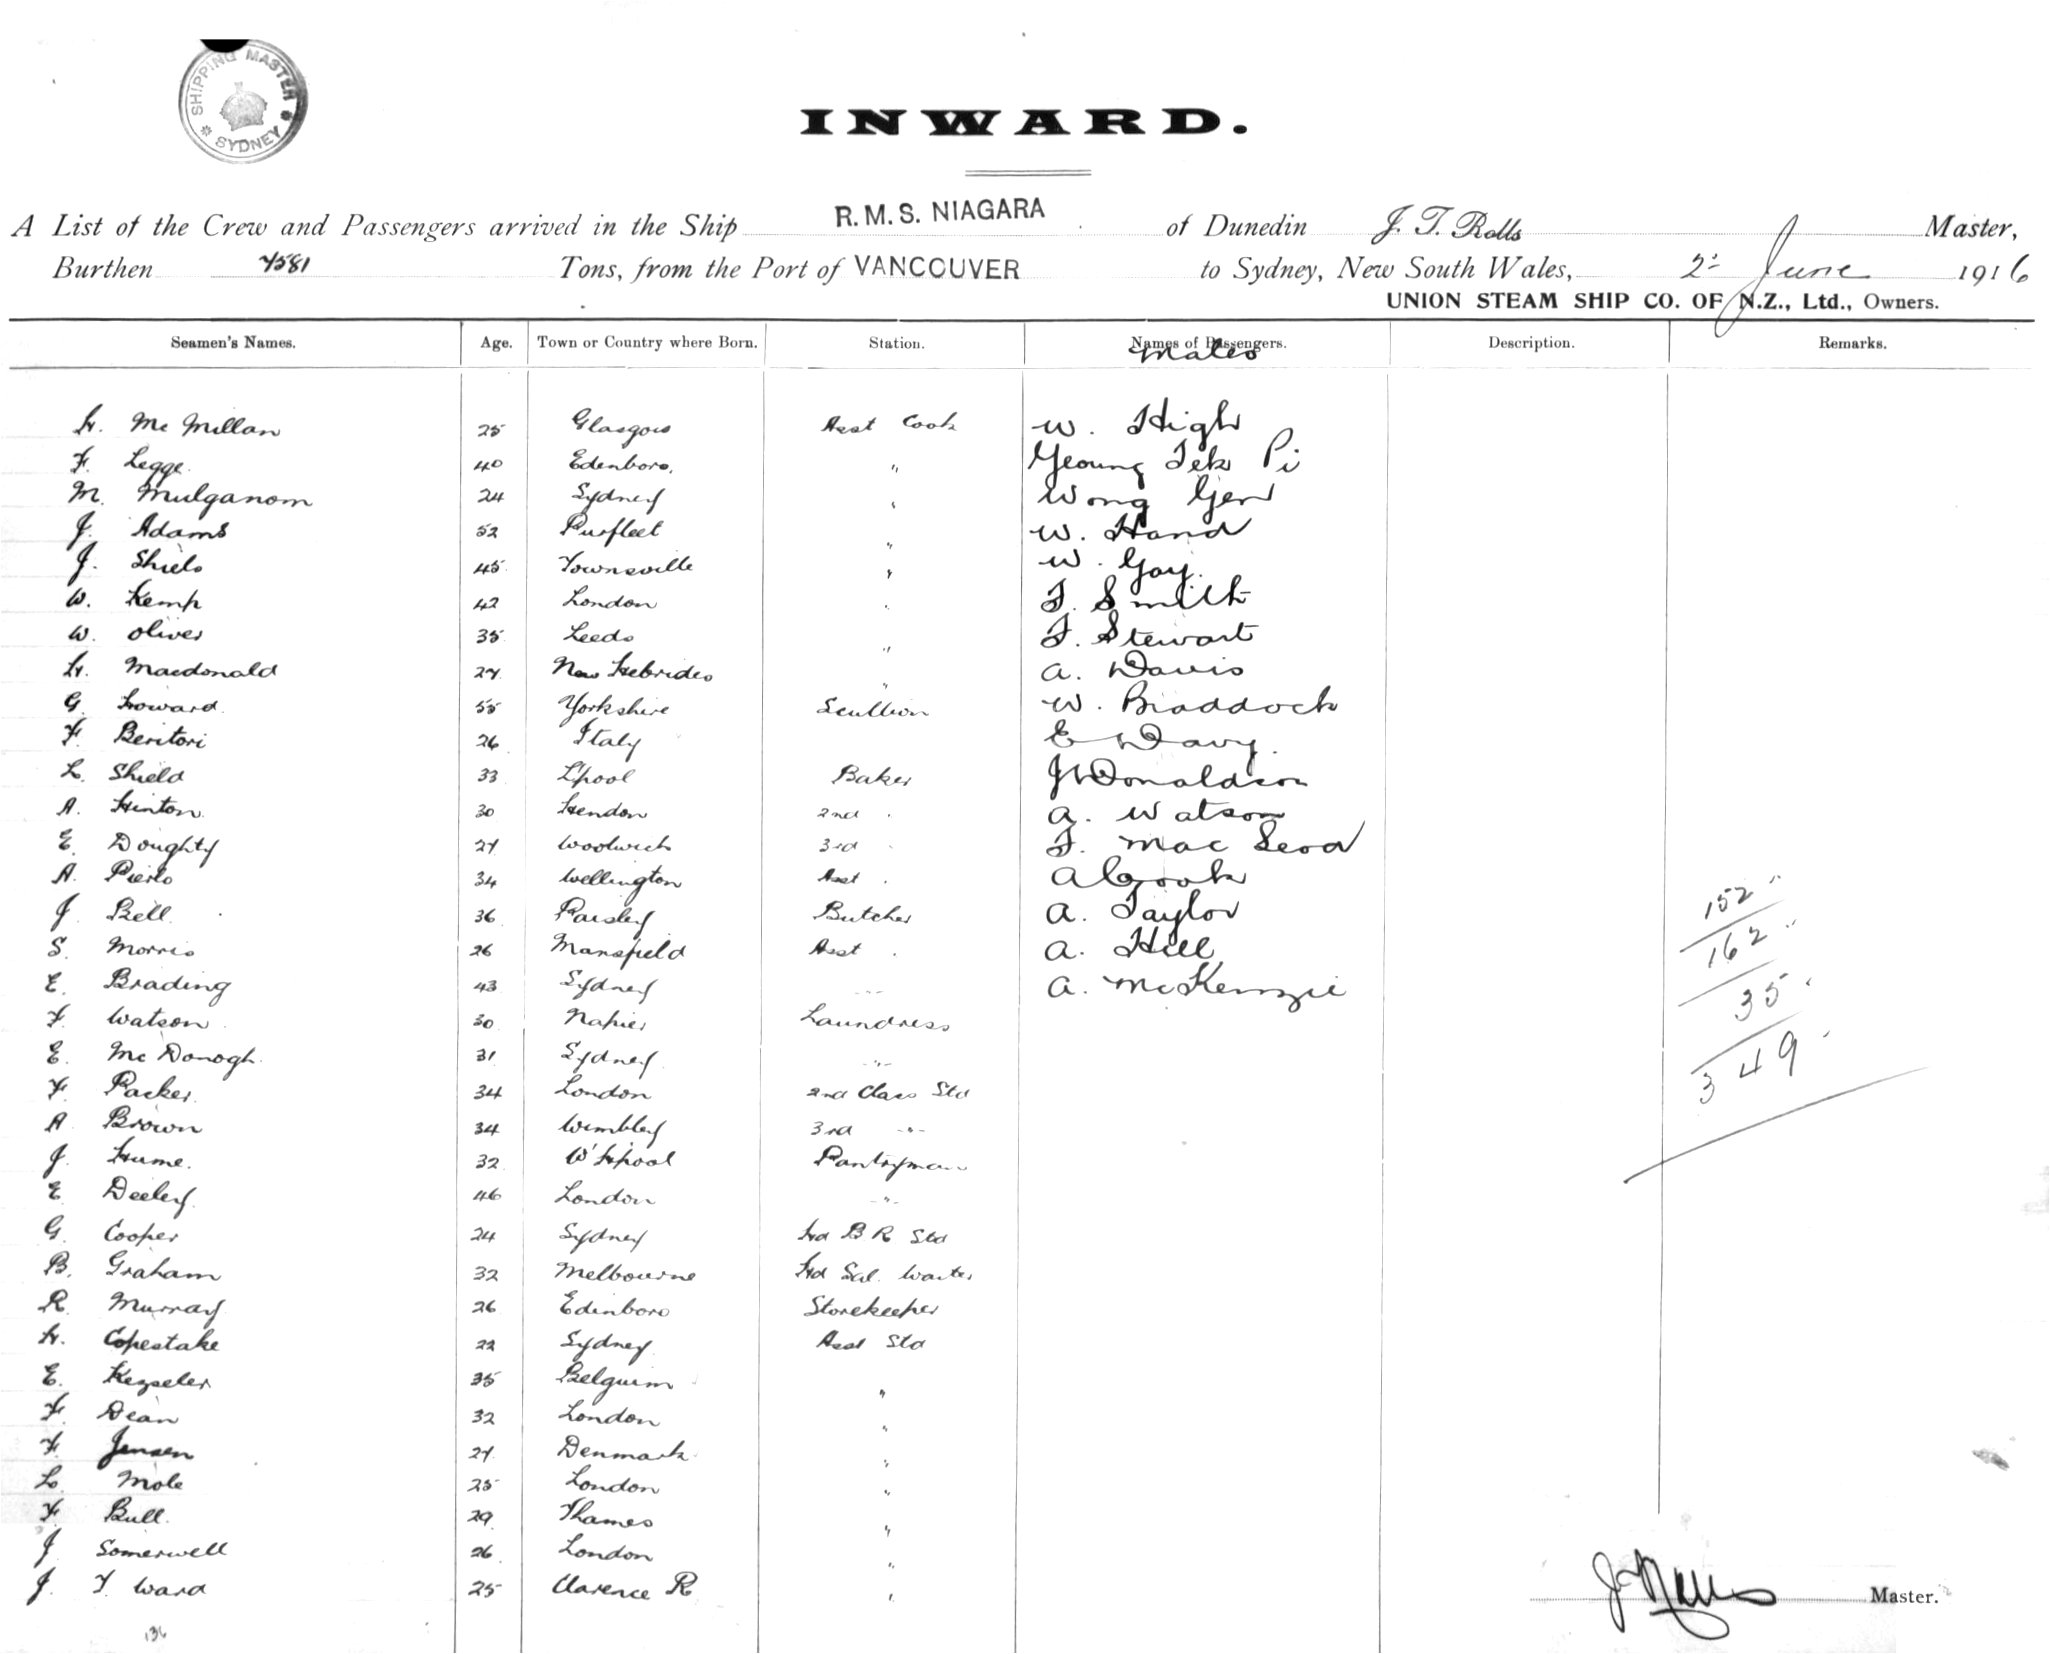 SHIPPING MASTER
SYDNEY
INWARD.
A List of the Crew and Passengers arrived in the Ship R.M.S. NIAGARA of Dunedin J. T. Rolls Master,
Burthen 7581 Tons, from the Port of VANCOUVER to Sydney, New South Wales, 2nd June 1916
UNION STEAM SHIP CO. OF N.Z., Ltd., Owners.
Seamen's Names. Age. Town or Country where Born. Station. Names of Passengers. Description. Remarks.
Males
H. McMillan 25 Glasgow Asst Cook W. High
F. Legge. 40 Edenboro. " Yeoung Tek Pi
M. Mulganom 24 Sydney " Wong Gen
J. Adams 52 Purfleet " W. Hand
J. Shiels 45 Townsville " W. Gay.
W. Kemp 42 London " F. Smith
W. Oliver 35 Leeds " F. Stewart
H. Macdonald 27 New Hebrides " A. Davis
G. Howard. 55 Yorkshire Scullion W. Braddock
F. Beritori 26 Italy E Davy.
L. Shield 33 L'pool Baker J Donaldson
A. Hinton. 30 Hendon 2nd " A. Watson
E. Doughty 27 Woolwich 3rd " F. Mac Leod
A. 34 Wellington Asst " A Cook
J. Bell. 36 Paisley Butcher A. Taylor
S. Morris 26 Mansfield Asst " A. Hill
E. Brading 43 Sydney -"- A. McKenzie
F. Watson 30 Napier Laundress
E. McDonogh. 31 Sydney -"-
F. Packer. 34 London 2nd Class Std
A Brown 34 Wimbley 3rd -"-
J. Hume. 32 W'Hpool Pantryman
E. Deeley. 46 London -"-
G. Cooper 24 Sydney Hd B R Std
B. Graham 32 Melbourne Hd Sal. Waiter
R. Murray 26 Edinboro Storekeeper
H. Copestake 22 Sydney Asst Std
E. Kezseler 35 Belguim "
F. Dean 32 London "
F. Jensen 27 Denmark "
L. Mole 25 London "
F. Bull. 29 Thames "
J Somerwell 26 London "
J. T. Ward 25 Clarence R "
152
162
35
349
136
J Rolls Master.